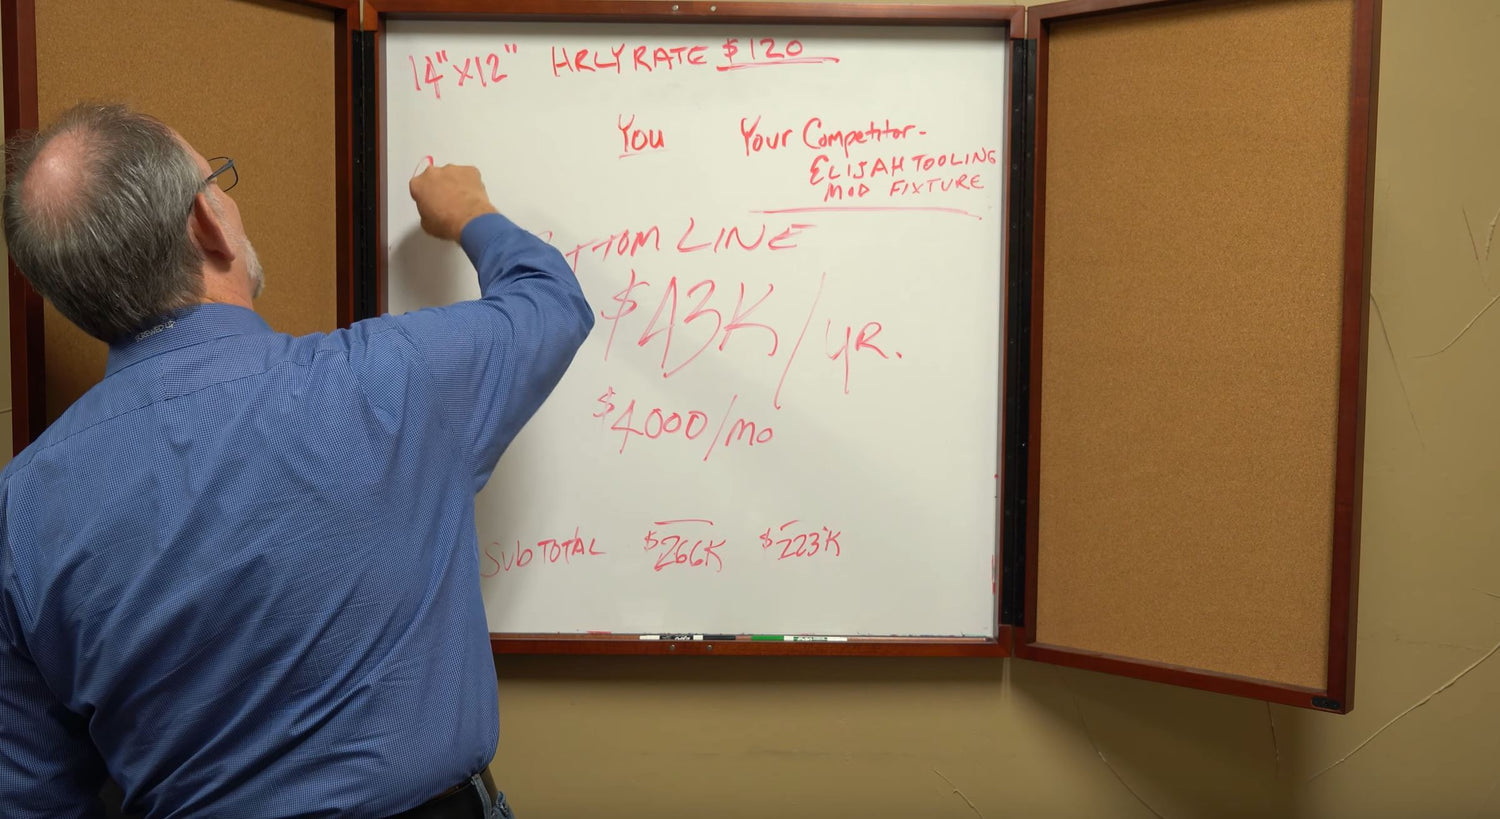 14"x12" HRLY RATE $120
You Your Competitor-
ELIJAH TOOLING
MOD FIXTURE
BOTTOM LINE
$43K/YR.
$4000/mo
SUBTOTAL $266K $223K